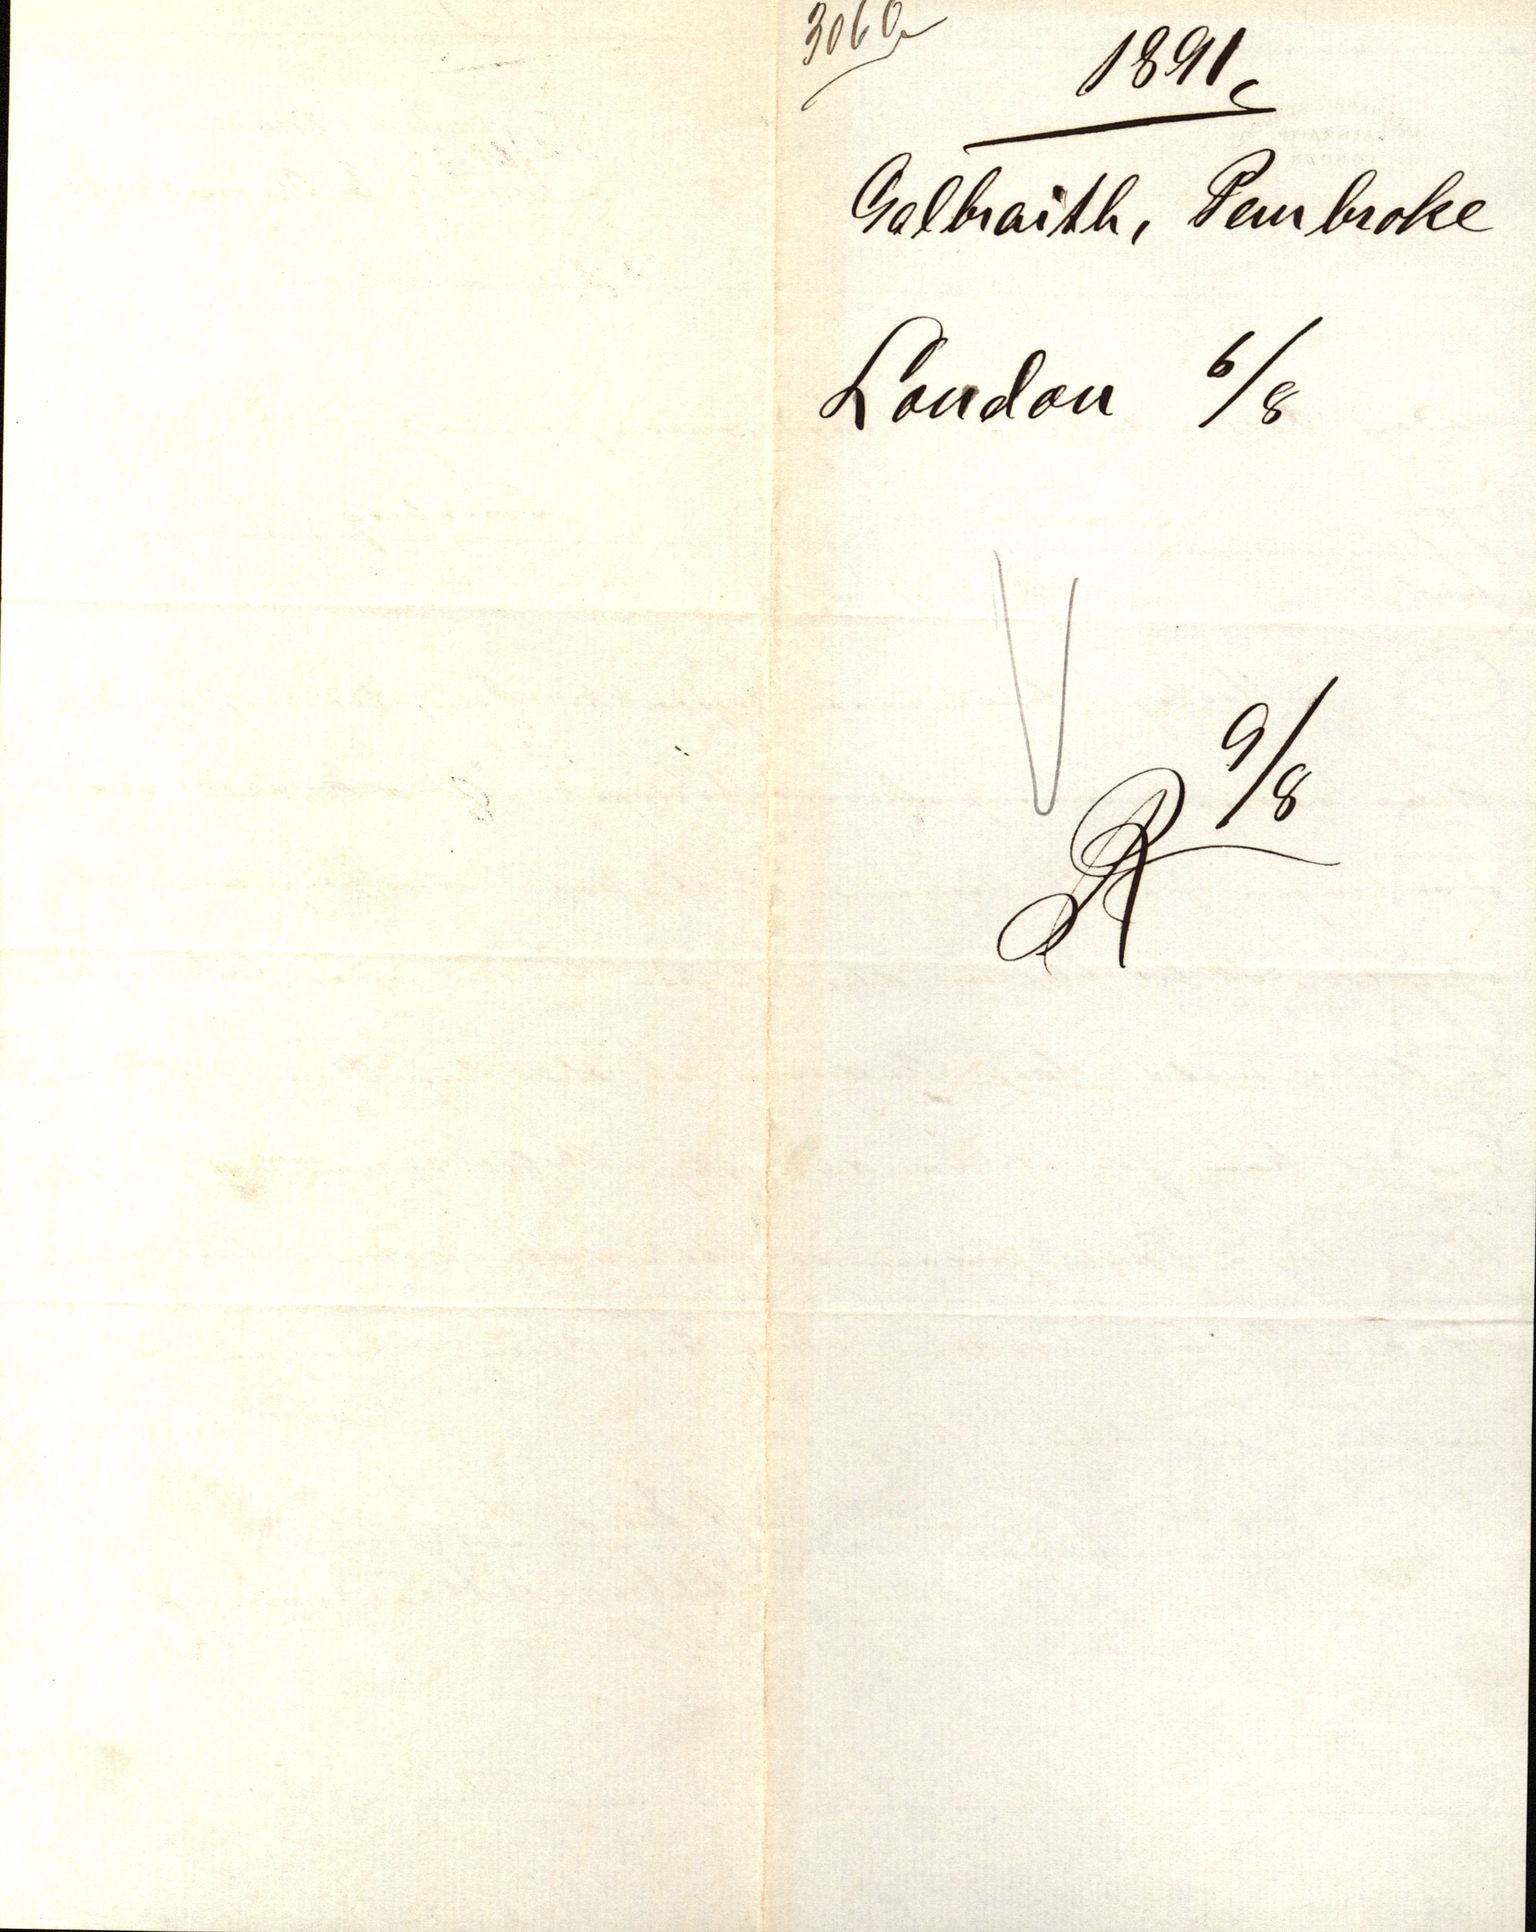 1891
Galbraith, Pembroke
London 6/8
9/8
R